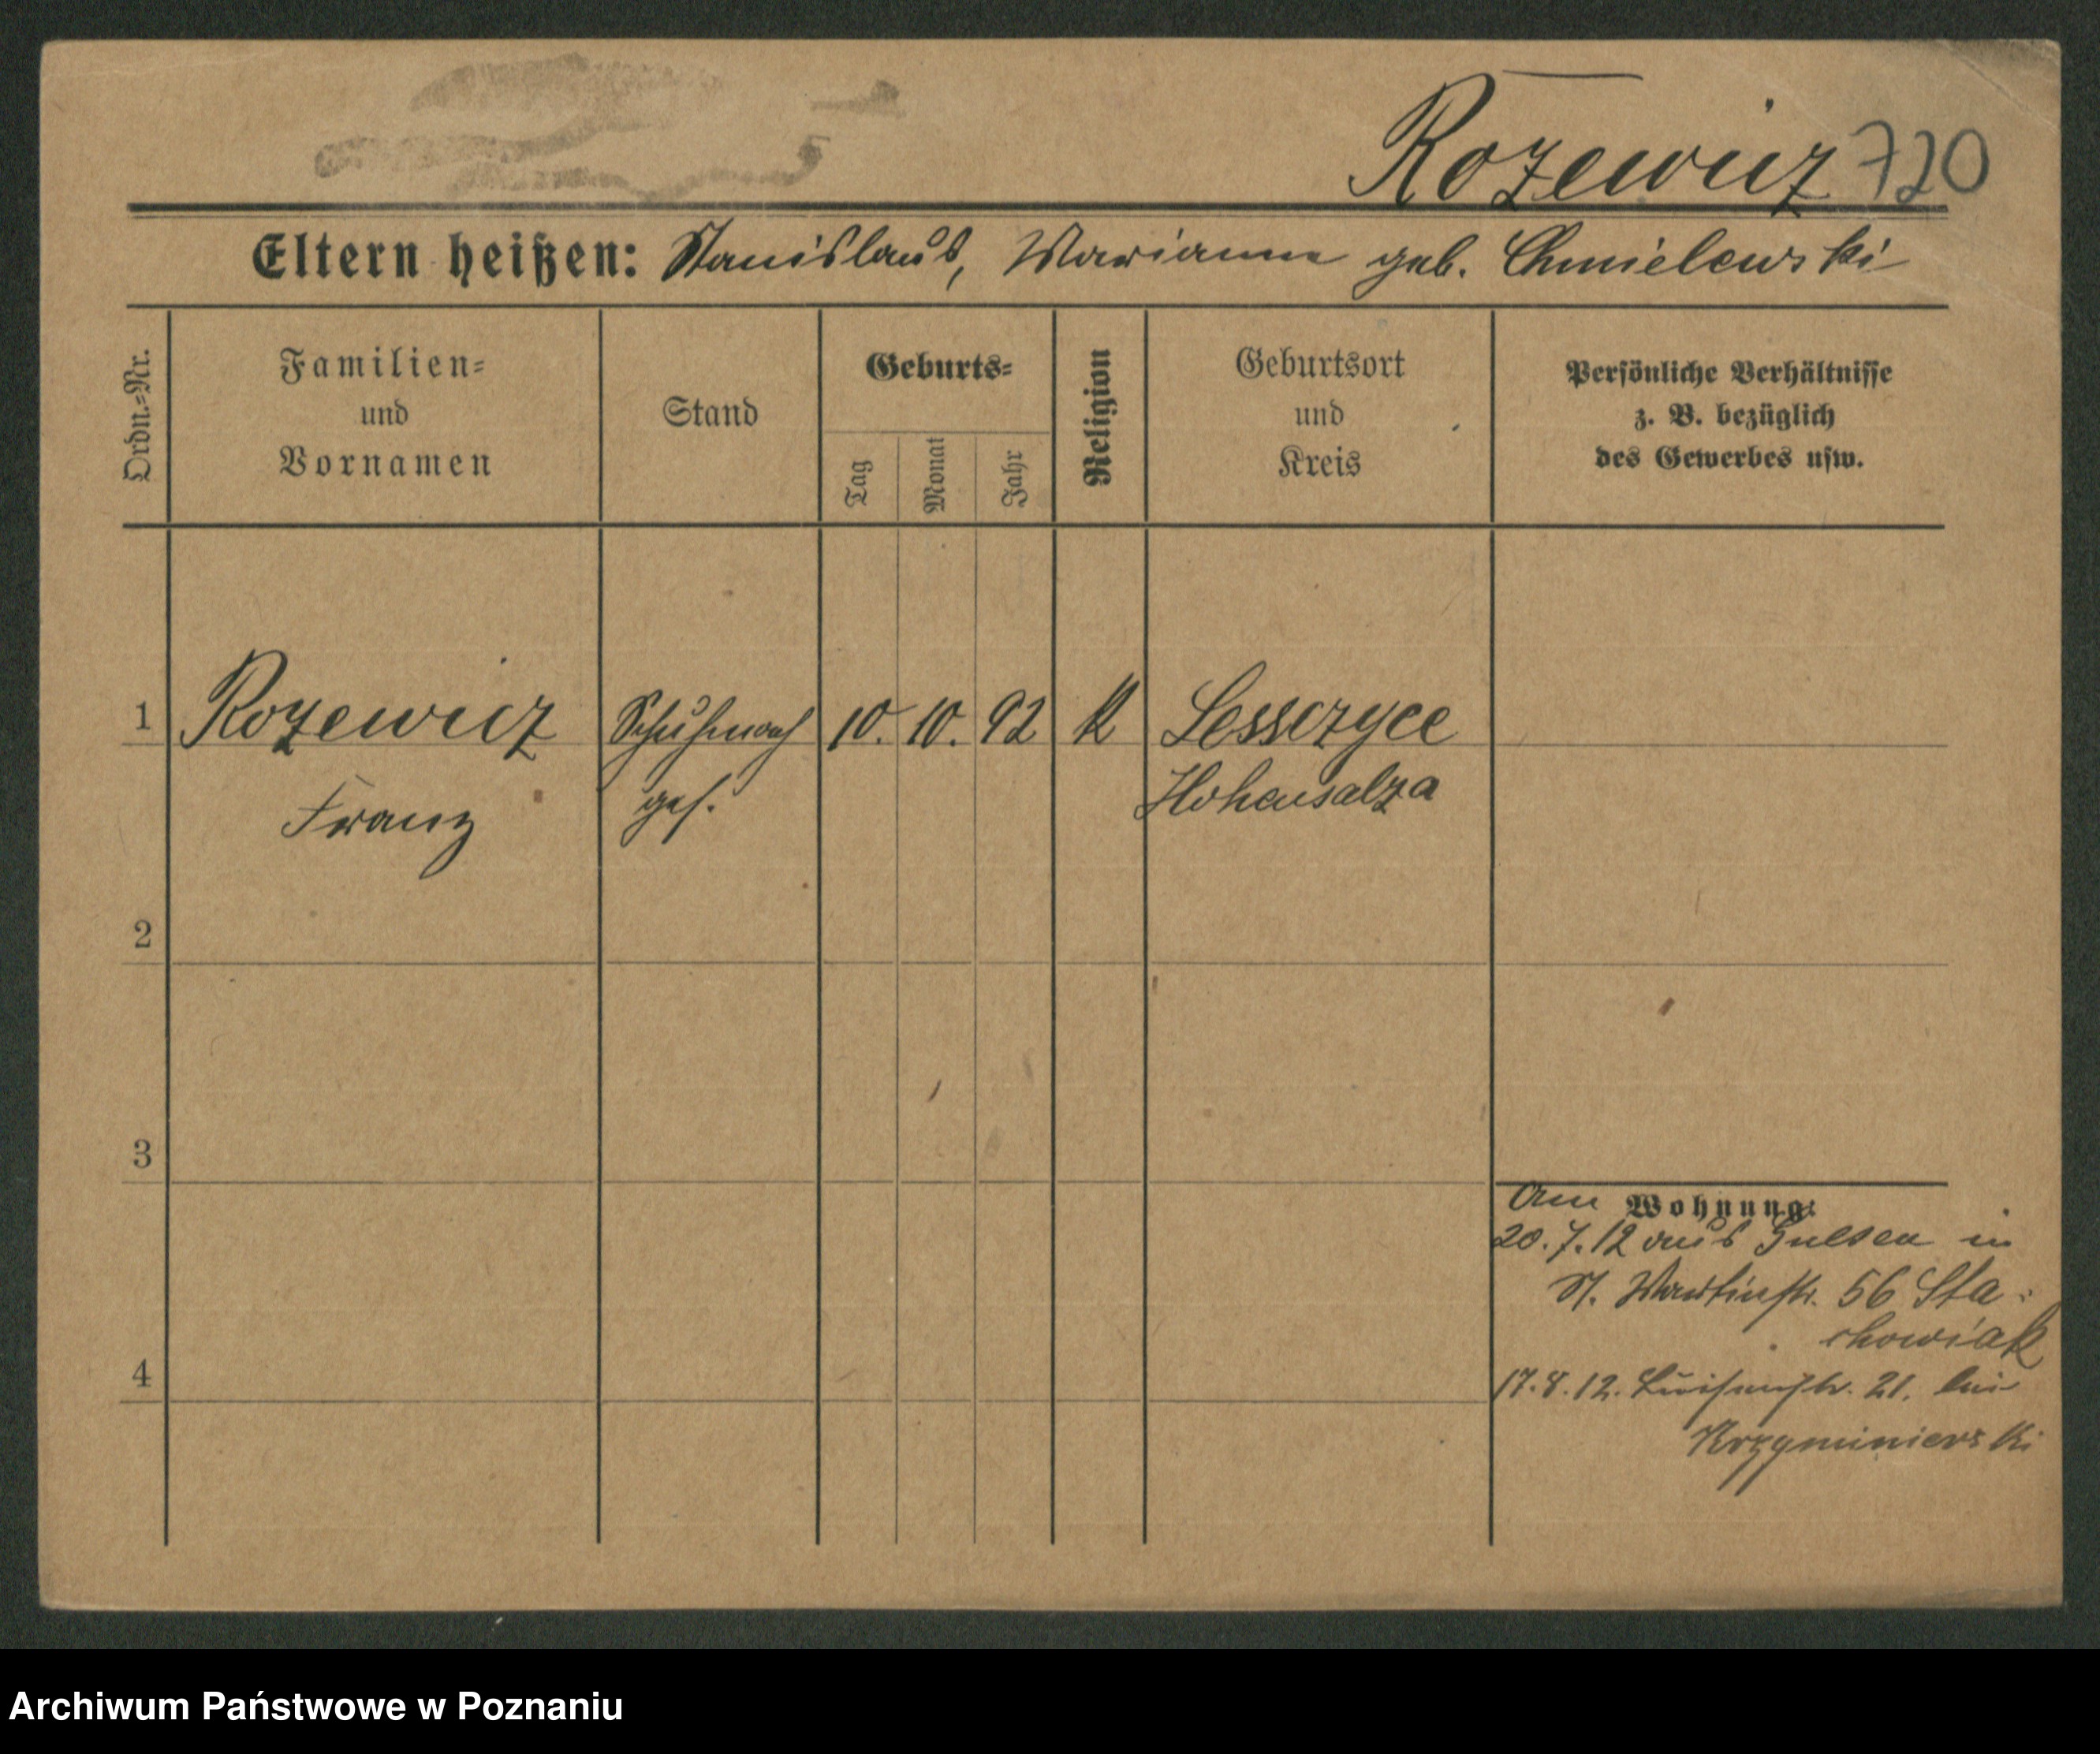 Rozewicz 720
Eltern heißen: Stanislaus, Marianna geb. Chmielewski
Ordn.=Nr.
Familien=
und
Vornamen
Stand
Geburts=
Tag
Monat
Jahr
Religion
Geburtsort
und
Kreis
Persönliche Verhältnisse
z. B. bezüglich
des Gewerbes usw.
1 Rozewicz Schuhmach 10. 10. 92 K Lessczyce
Franz ges. Hohensalza
2
3
Am Wohnung:
20.7.12 aus in
St. Martinstr. 56 Sta=
chowiak
4
17.8.12. Luisenstr. 21. bei
Krzyminierski
Archiwum Państwowe w Poznaniu